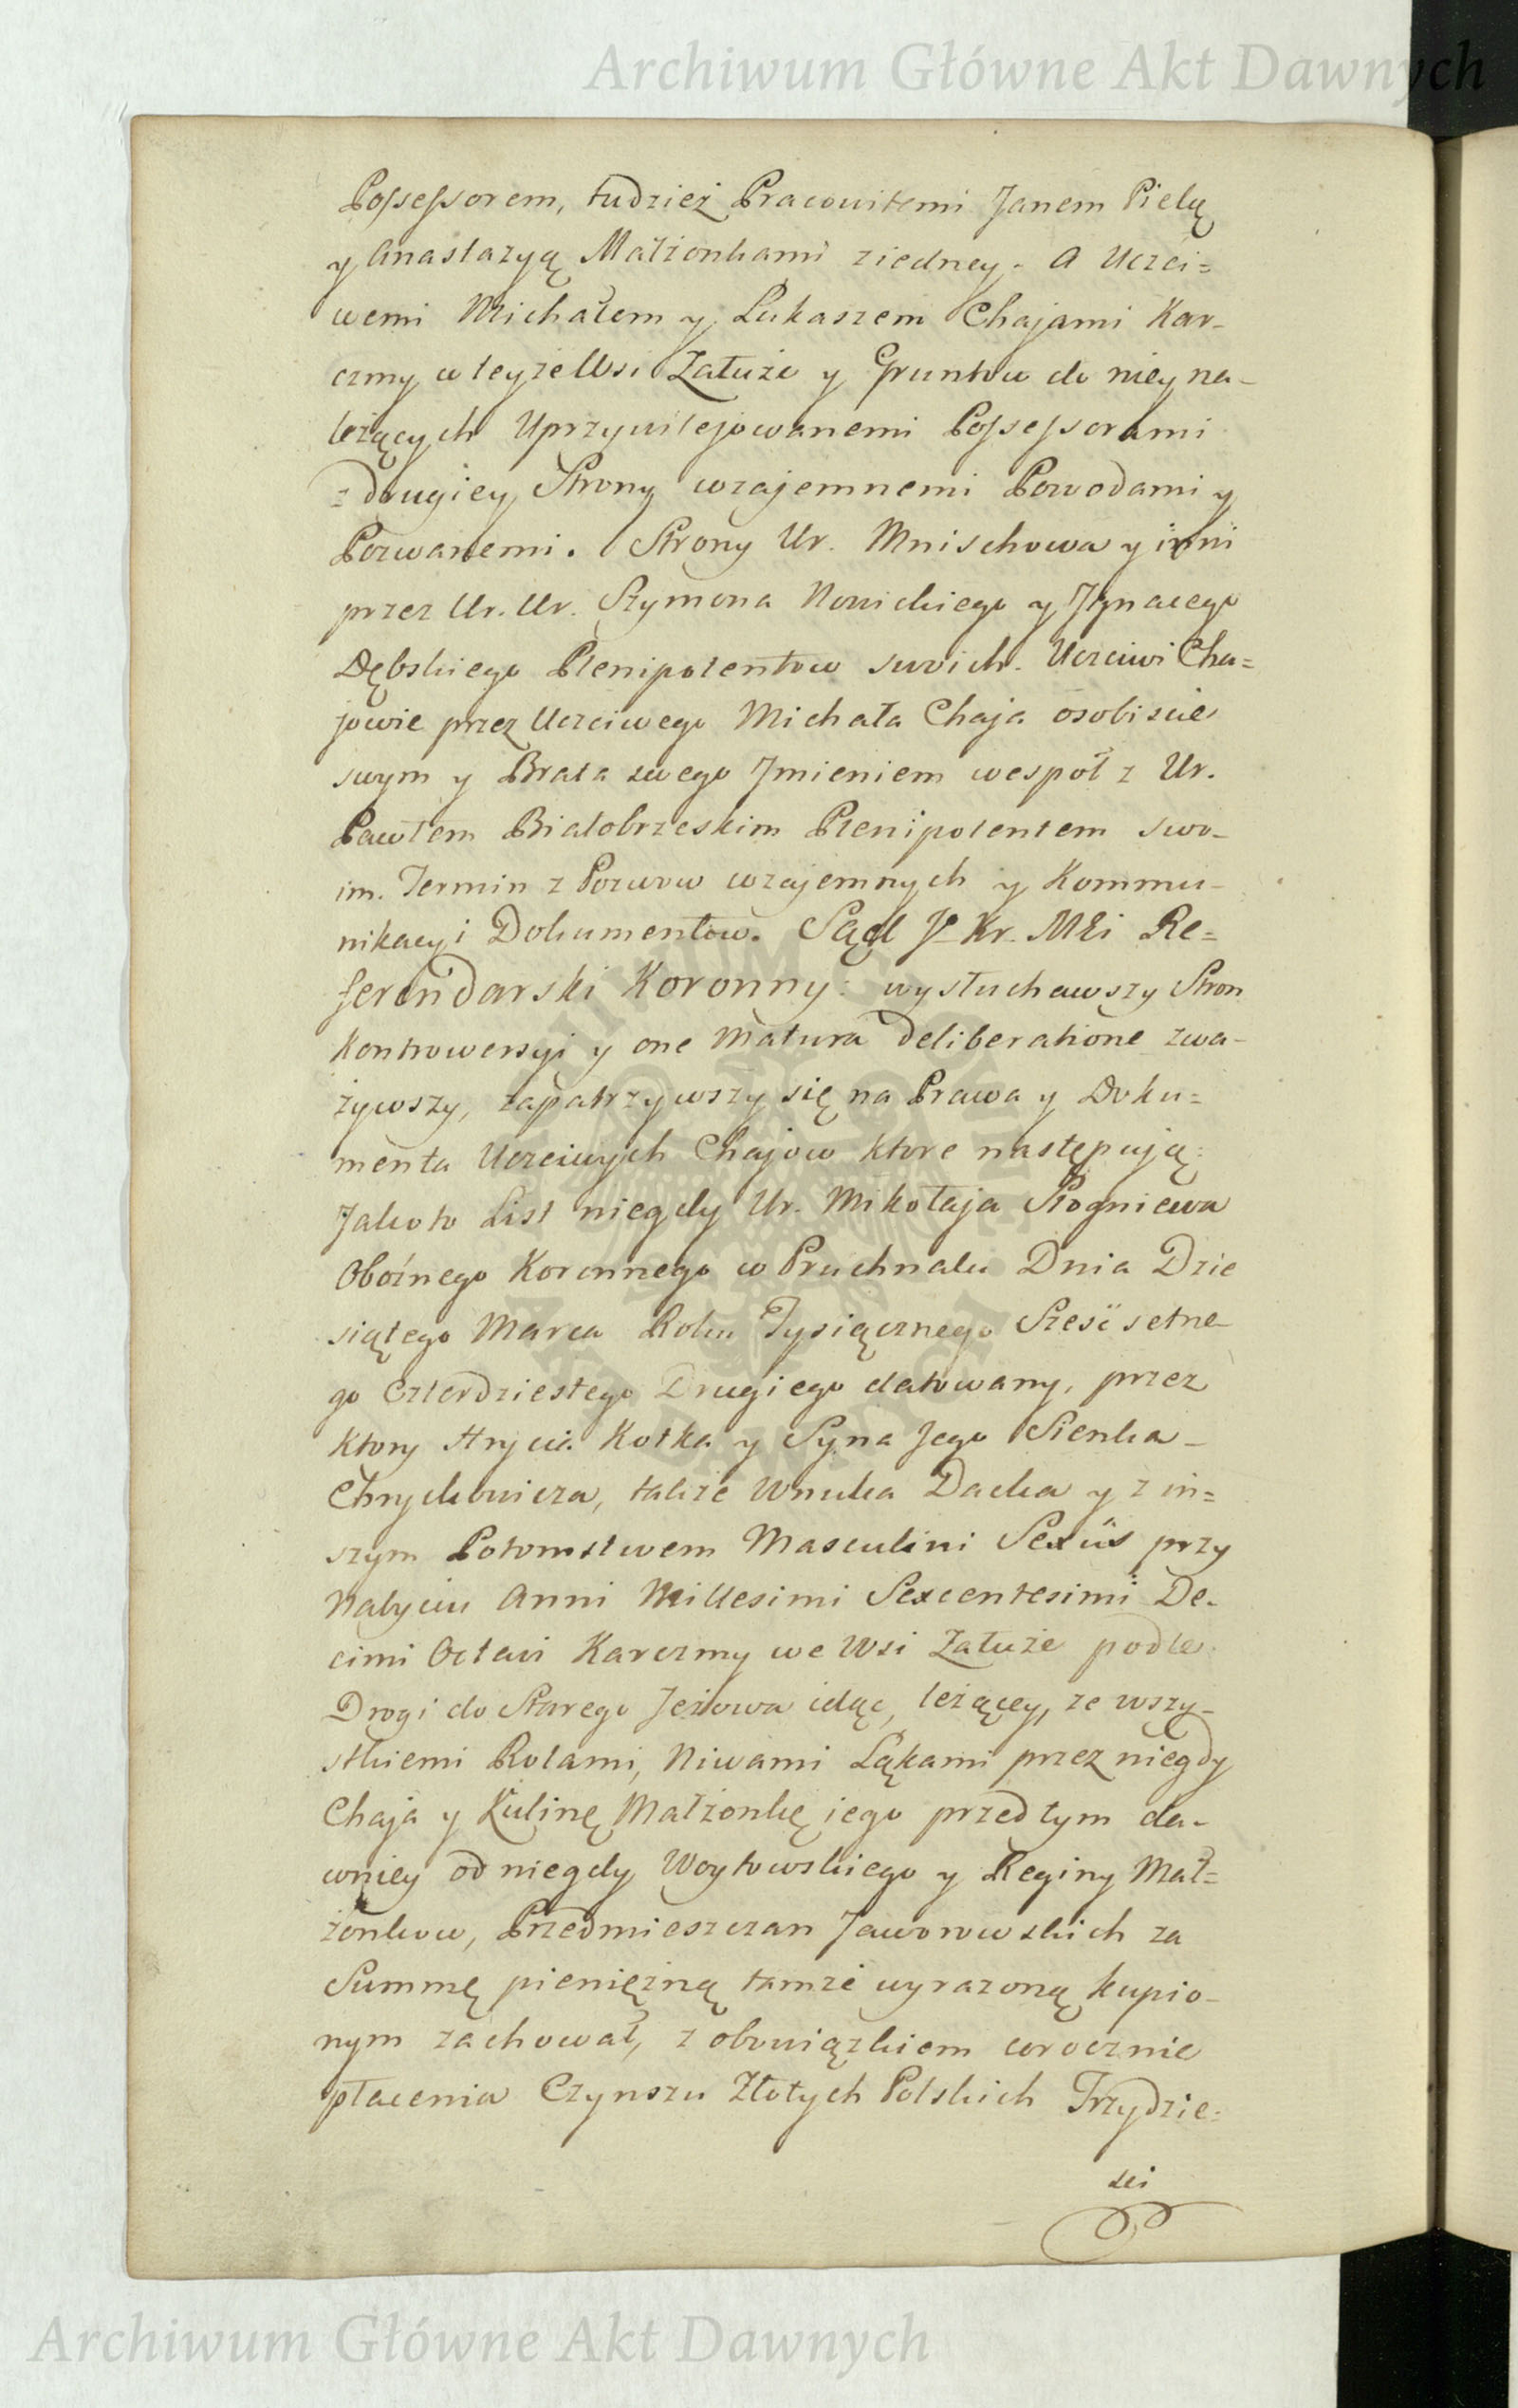 Archiwum Główne Akt Dawnych
Possessorem, tudzież Pracowitemi Janem Pielą
y Anastazyą Małżonkami z iedney. A Uczci=
wemi Michałem y Łukaszem Chajami Kar-
czmy w teyże Wsi Załuże y Gruntow do niey na-
leżących Uprzywilejowanemi Possessorami
z drugiey Strony wzajemnemi Powodami y
Pozwanemi. Strony Ur. Mnischowa y inni
przez Ur. Ur. Szymona Nowickiego y Jgnacego
Dębskiego Plenipotentow swoich. Uczciwi Cha=
jowie przez Uczciwego Michała Chaja osobiscie
swym y Brata swego Jmieniem wespoł z Ur.
Pawłem Białobrzeskim Plenipotentem swo-
im. Termin z Pozwow wzajemnych y Kommu-
nikacyi Dokumentow. Sąd J. Kr. Mci Re=
ferendarski Koronny: wysłuchawszy Stron
Kontrowersyi y one Matura deliberatione zwa-
żywszy, zapatrzywszy się na Prawa y Doku=
menta Uczciwych Chajow ktore następują:
Jakoto List niegdy Ur. Mikołaja Stogniewa
Oboźnego Koronnego w Pruchnaku Dnia Dzie
siątego Marca Roku Tysiącznego Szesć setne-
go Czterdziestego Drugiego datowany, przez
Ktory Hrycia Kotka y Syna Jego Sienka
Chryckowicza, także Wnuka Dacka y z in=
szym Potomstwem Masculini Sexûs przy
Nabyciu Anni Millesimi Sexcentesimi De-
cimi Octavi Karczmy we Wsi Załuże podle
Drogi do Starego Jeżowa idąc, leżącey, ze wszy-
stkiemi Rolami, Niwami Łąkami przez niegdy
Chaja y Kulinę Małżonkę iego przed tym da-
wniey od niegdy Woytowskiego y Reginy Mał=
żonkow, Przedmieszczan Jaworowskich za
Summę pieniężną tamże wyrażoną kupio-
nym zachował, z obowiązkiem corocznie
płacenia Czynszu Złotych Polskich Trzydzie=
sci
Archiwum Główne Akt Dawnych